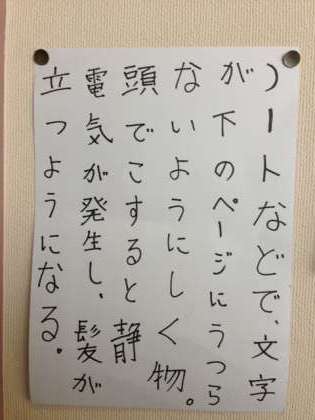 ）ートなどで、文字
が下のページにうつら
ないようにしく物。
頭でこすると静
電気が発生し、髪が
立つようになる。